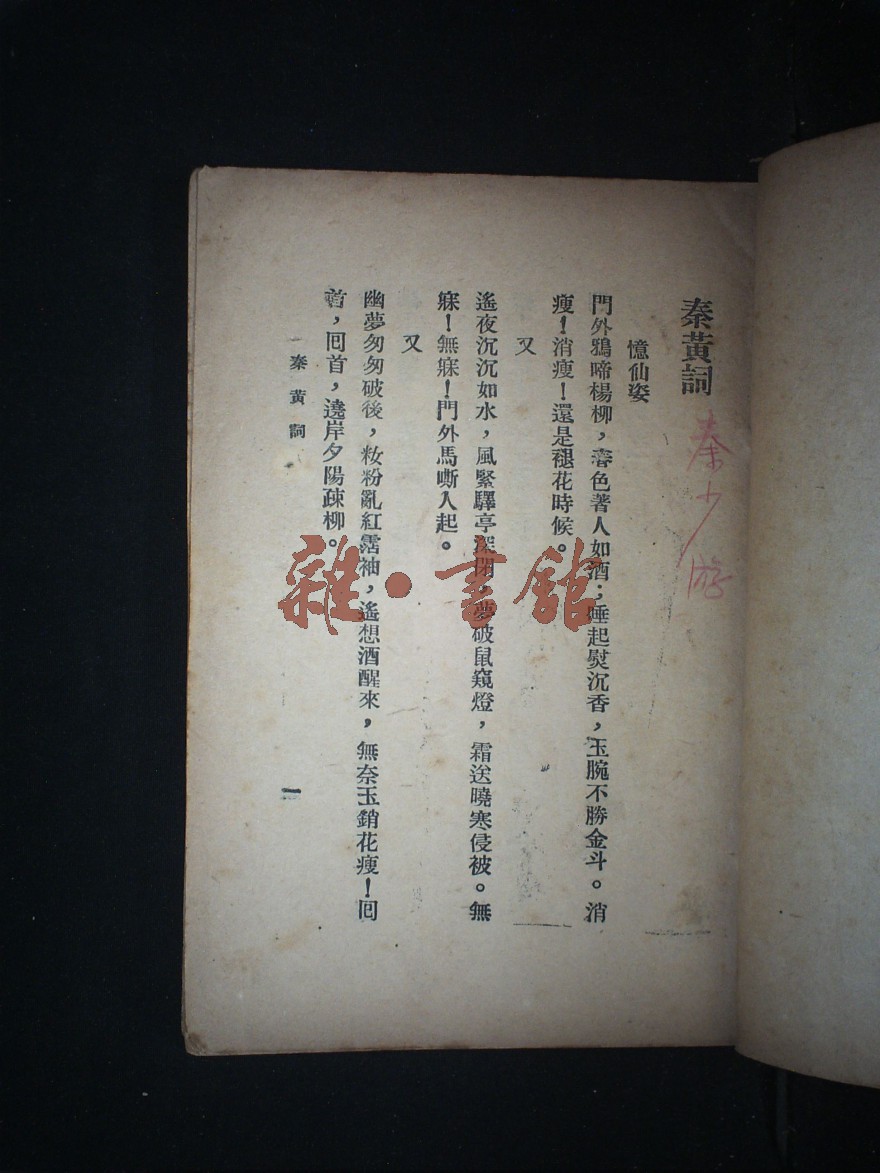 秦黃詞
秦少游
憶仙姿
門外鴉啼楊柳，春色著人如酒；睡起熨沉香，玉腕不勝金斗。消
瘦！消瘦！還是褪花時候。
又
遙夜沉沉如水，風緊驛亭深閉，夢破鼠窺燈，霜送曉寒侵被。無
寐！無寐！門外馬嘶人起。
又
幽夢匆匆破後，妝粉亂紅霑袖，遙想酒醒來，無奈玉銷花瘦！囘
首，囘首，遶岸夕陽疎柳。
秦黃詞
一
雜·書館